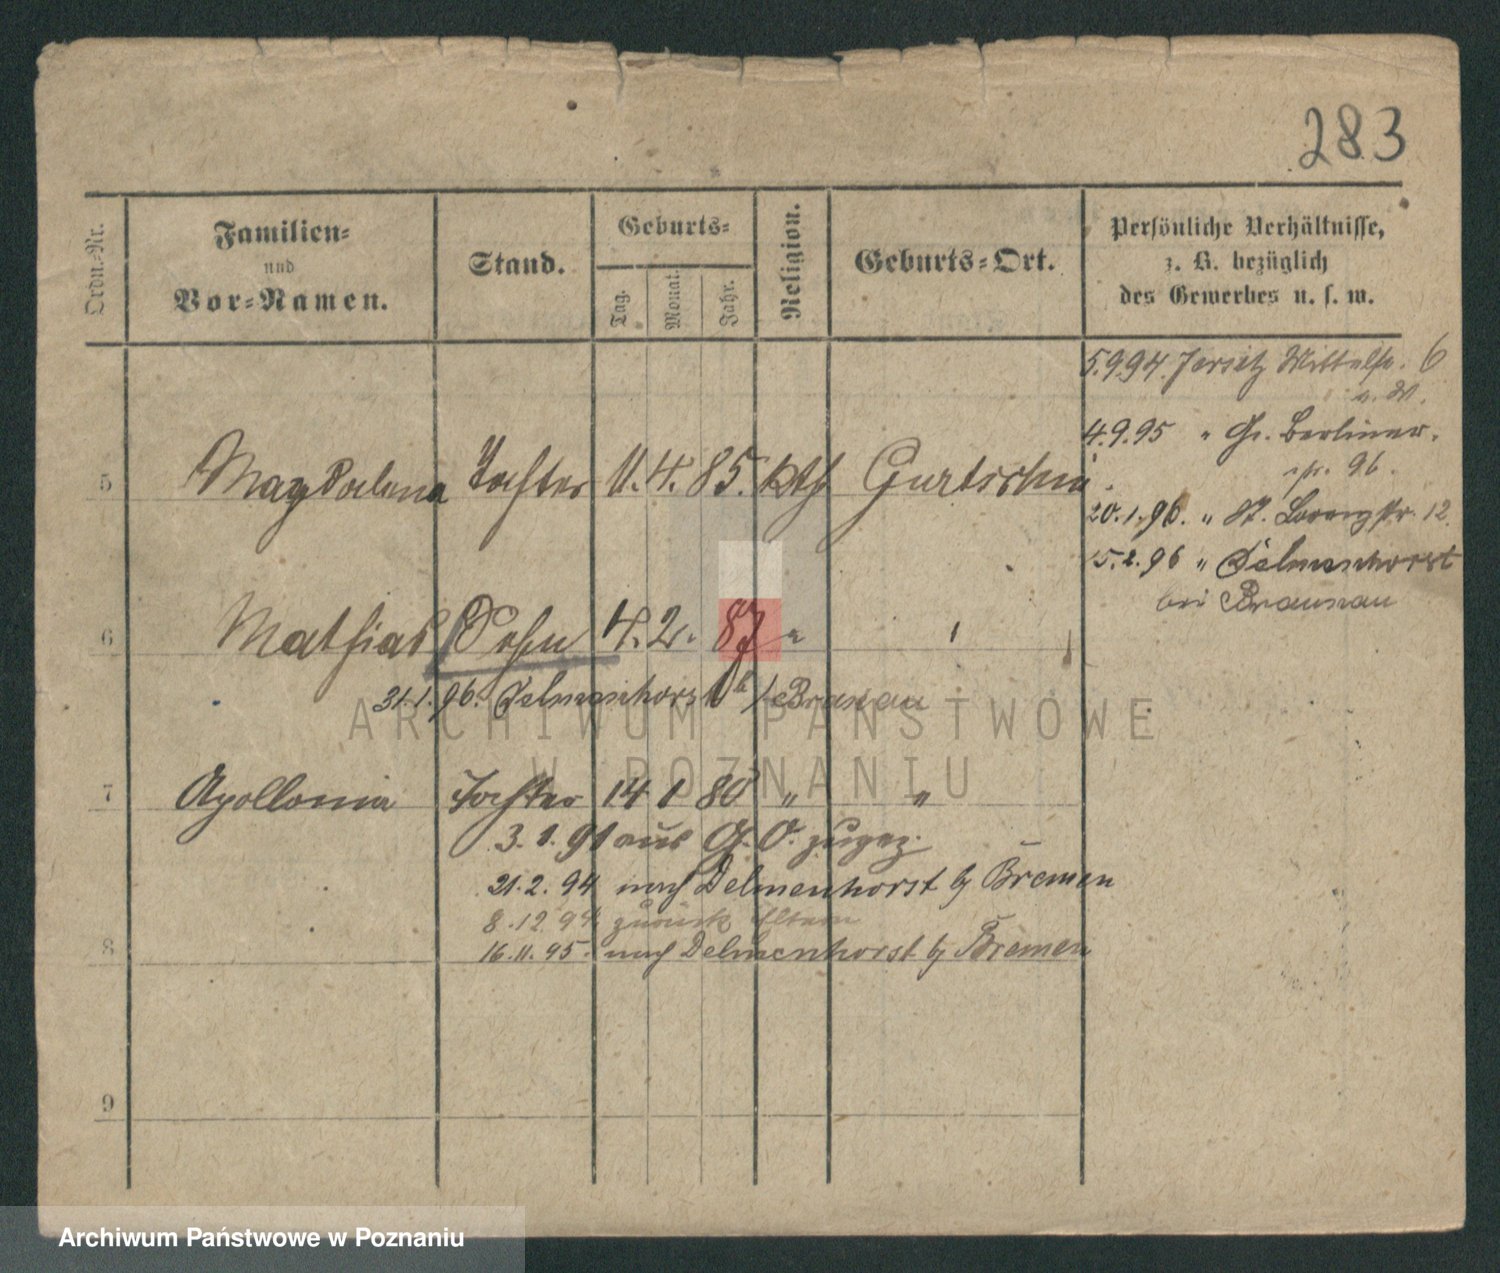 283
Ordn.-Nr.
Familien-
und
Vor-Namen.
Stand.
Geburts-
Tag.
Monat.
Jahr.
Religion.
Geburts-Ort.
Persönliche Verhältnisse,
z. B. bezüglich
des Gewerbes u. s. w.
5.9.94. Jersitz Mittelstr. 6
4.9.95 " Gr. Berliner-
str. 96.
5 Magdalena Tochter 11. 4. 85. kth Gurtschin
20.1.96. " St. Lorenzstr. 12
15.2.96 " Delmenhorst
bei Braunau
6 Mathias Sohn 4. 2. 87 "
31.1.96. Delmenhorst b/ Braunau
ARCHIWUM PAŃSTWOWE
W POZNANIU
7 Apollonia Tochter 14 1 80 " "
3.1.91 aus G. O. zugez.
21.2.94 nach Delmenhorst b/ Bremen
8.12.94 zurück Eltern
8 16.11.95. nach Delmenhorst b/ Bremen
9
Archiwum Państwowe w Poznaniu